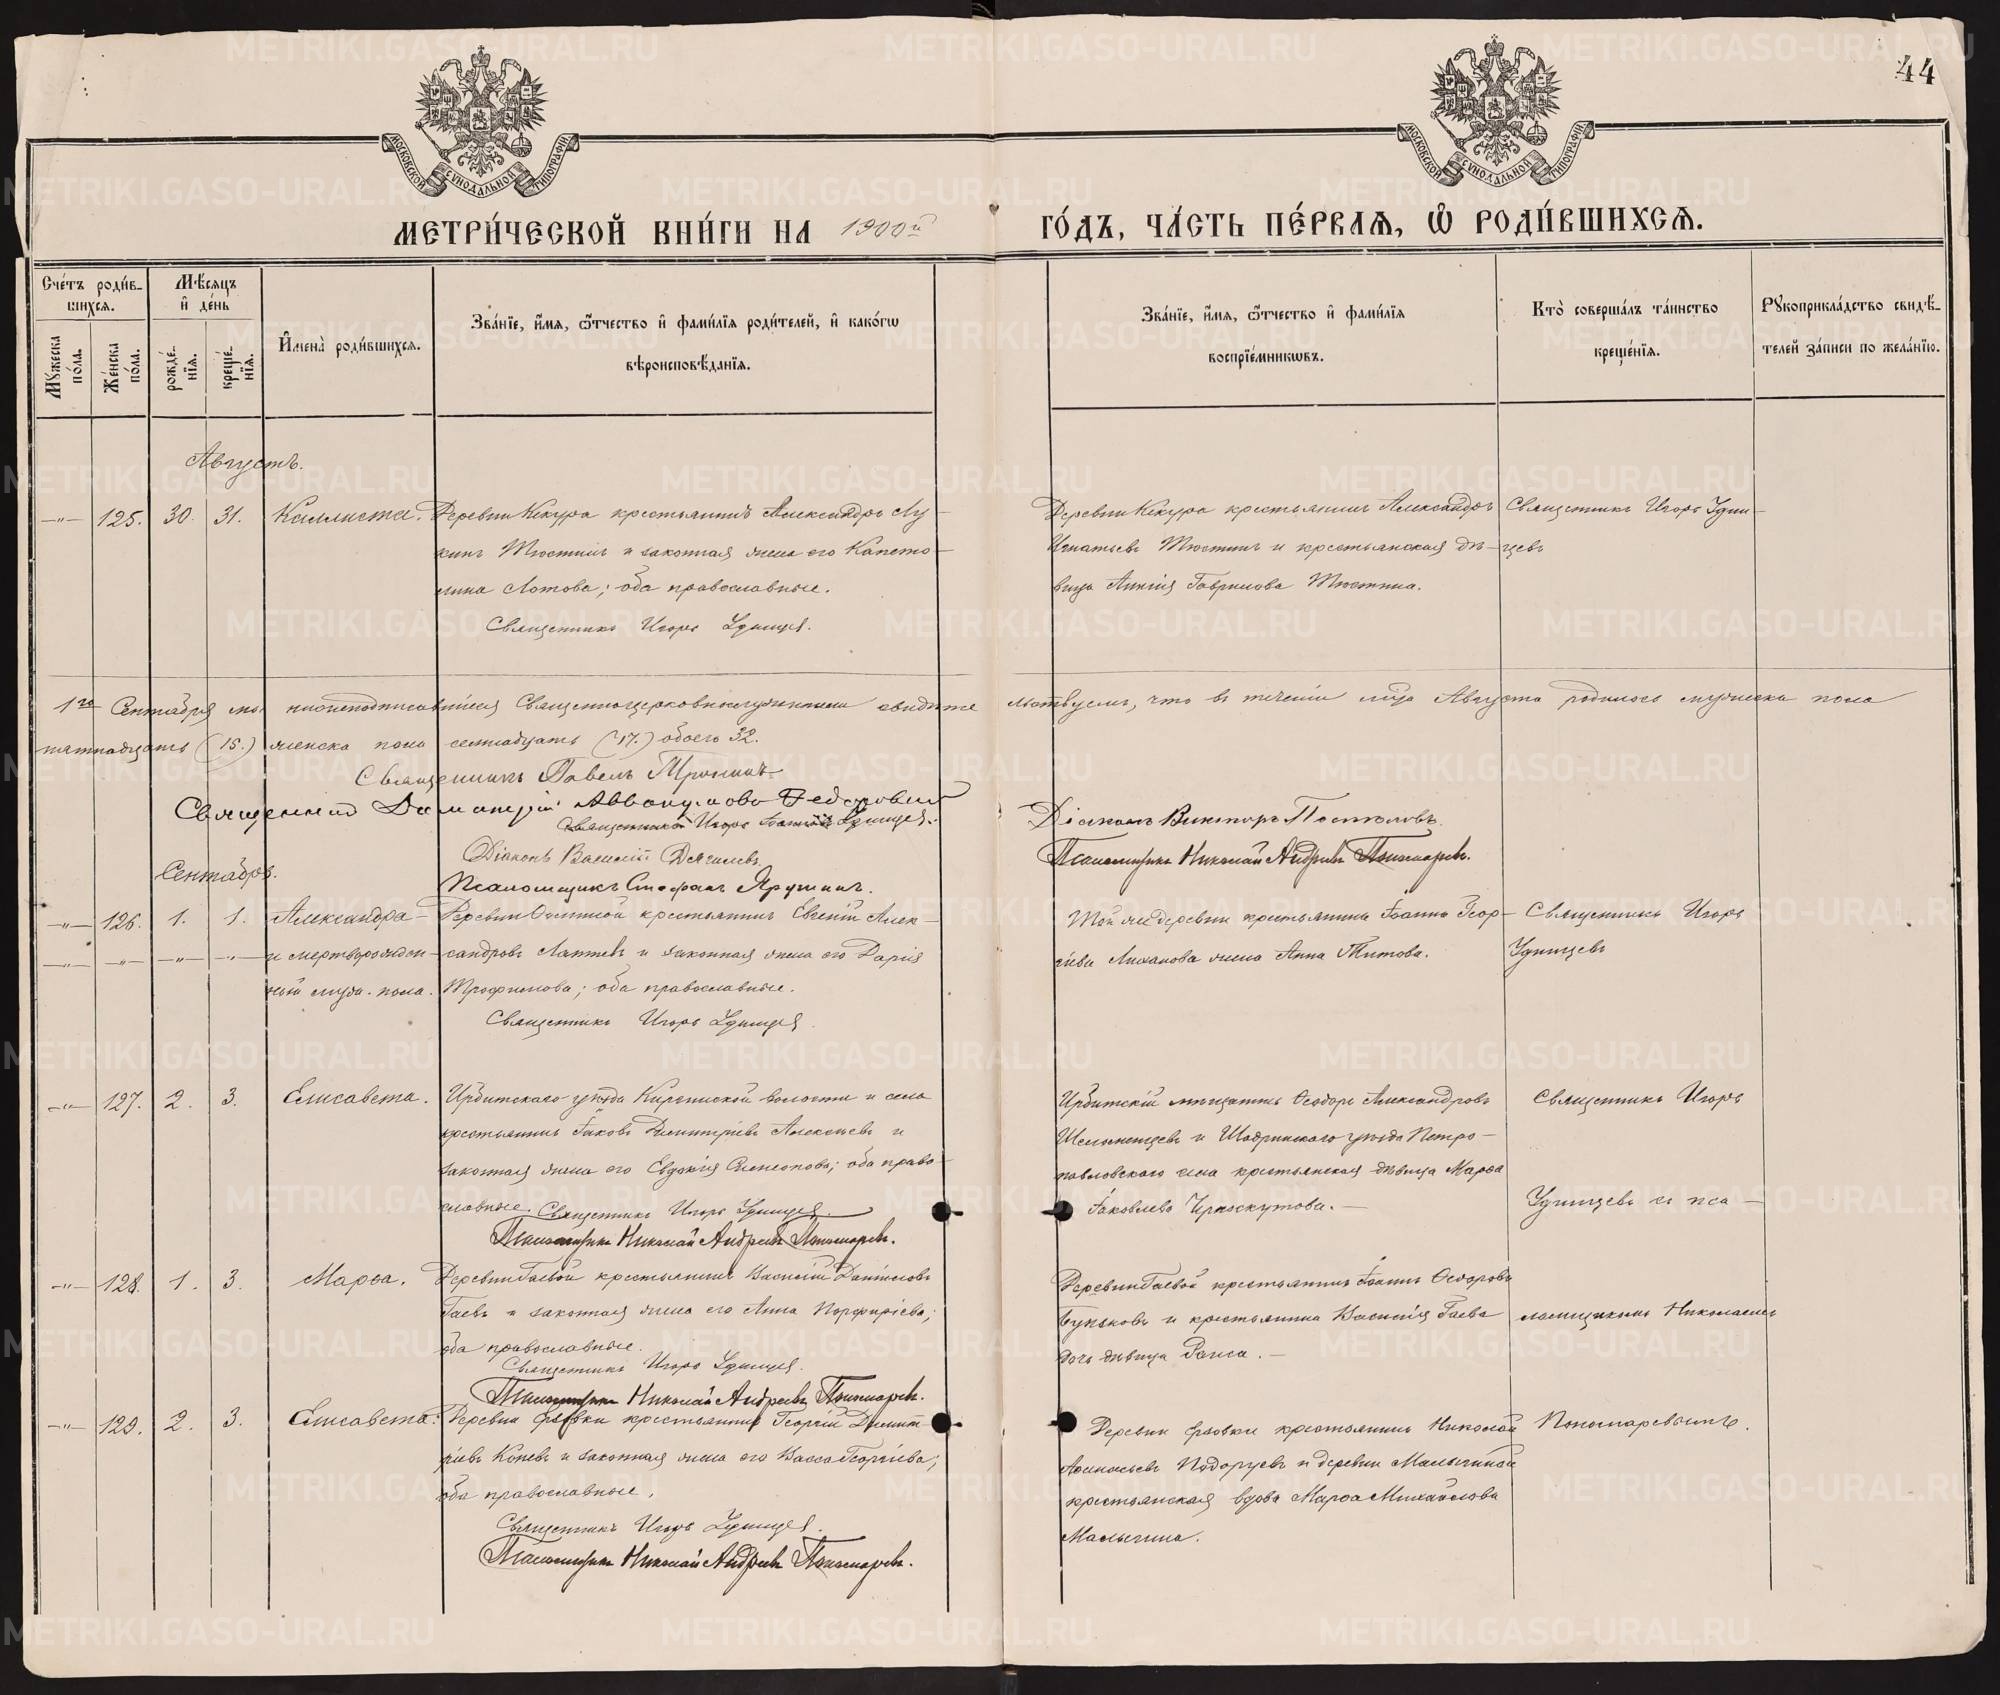 44
МОСКОВСКОЙ СУНОДАЛЬНОЙ ТИПОГРАФІИ.
МОСКОВСКОЙ СУНОДАЛЬНОЙ ТИПОГРАФІИ.
МЕТРИ́ЧЕСКОЙ КНИ́ГИ НА 1900й ГО́ДЪ, ЧА́СТЬ ПЕ́РВАѦ, Ѡ РОДИ́ВШИХСѦ.
Сче́тъ роди́в-
шихсѧ.
Мꙋжеска по́ла.
Же́нска по́ла.
Мѣ́сѧцъ и де́нь
рожде́нїѧ.
креще́нїѧ.
Имена̀ роди́вшихсѧ.
Зва́нїе, и҆́мѧ, ѻ҆́тчество и҆ фамилїѧ роди́телей, и҆ како́гѡ
вѣроисповѣ́данїѧ.
Зва́нїе, и҆́мѧ, ѻ҆́тчество и҆ фами́лїѧ
воспрїе́мникѡвъ.
Кто̀ соверша́лъ та́инство
креще́нїѧ.
Рꙋкоприкла́дство свидѣ́-
телей за́писи по жела́нїю.
Августъ.
—"— 125. 30. 31. Каллиста.
Деревни Кекура крестьянинъ Александръ Лу-
кинъ Тюстинъ и законная жена его Капето-
лина Лотова; оба православные.
Священникъ Игорь Удинцев.
Деревни Кекура крестьянинъ Александръ
Игнатьевъ Тюстинъ и крестьянская дѣ-
вица Анисія Гаврилова Тюстина.
Священникъ Игорь Удин-
цевъ
1го Сентября мы нижеподписавшіеся Священноцерковнослужители свидѣте льствуемъ, что въ теченіи м-ца Августа родилось мужеска пола
пятнадцать (15.) женска пола семнадцать (17.) обоего 32.
Священникъ Павелъ
Священникъ Аввакумовъ Федоровскій
Священникъ Игорь Удинцев.
Діаконъ Василій Дягилевъ.
Псаломщикъ Стефанъ Ярушинъ.
Діаконъ Викторъ Постоловъ.
Псаломщикъ Николай Андреевъ Пономаревъ.
Сентябрь.
—"— 126. 1. 1. Александра
—"— —"— —"— —"— и мертворожден-
ный муж. пола.
крестьянинъ Евгеній Алек-
сандровъ Лаптевъ и законная жена его Дарія
Трофимова; оба православные.
Священникъ Игорь Удинцев
Той же деревни крестьянина Іоанна Геор-
гіева Лиханова жена Анна Титова.
Священникъ Игорь
Удинцевъ
—"— 127. 2. 3. Елисавета.
Ирбитскаго уѣзда Киргинской волости и села
крестьянинъ Іаковъ Димитріевъ Алексѣевъ и
законная жена его Евдокія Симеонова; оба право-
славные. Священникъ Игорь Удинцев.
Псаломщикъ Николай Андреевъ Пономаревъ.
Ирбитскій мѣщанинъ Ѳеодоръ Александровъ
и Шадринскаго уѣзда Петро-
павловскаго села крестьянская дѣвица Марѳа
Іаковлева Черноскутова.—
Священникъ Игорь
Удинцевъ съ пса-
—"— 128. 1. 3. Марѳа.
Деревни Гаевой крестьянинъ Василій Даниловъ
Гаевъ и законная жена его Анна Порфиріева;
оба православные.
Священникъ Игорь Удинцев.
Псаломщикъ Николай Андреевъ Пономаревъ.
Деревни Гаевой крестьянинъ Іоаннъ Ѳеодоровъ
Буньковъ и крестьянина Василія Гаева
дочь дѣвица Раиса.—
ломщикомъ Николаемъ
—"— 129. 2. 3. Елисавета.
Деревни крестьянинъ Георгій Димит-
ріевъ Коневъ и законная жена его Васса Георгіева;
оба православные.
Священникъ Игорь Удинцев.
Псаломщикъ Николай Андреевъ Пономаревъ.
Деревни крестьянинъ Николай
Аѳанасьевъ и деревни Малыгиной
крестьянская вдова Марѳа Михайлова
Малыгина.
Пономаревымъ.
METRIKI.GASO-URAL.RU